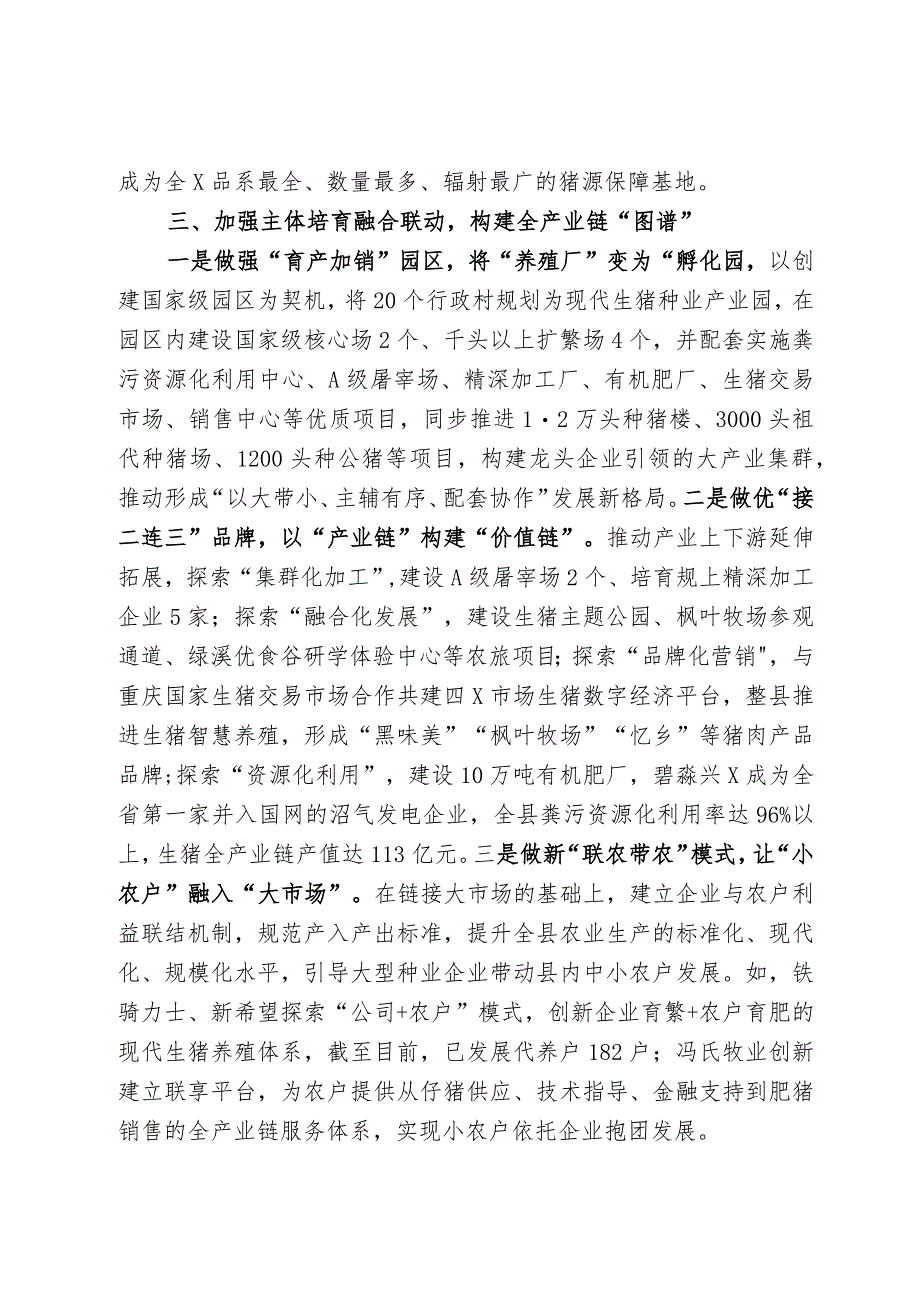 成为全X品系最全、数量最多、辐射最广的猪源保障基地。
三、加强主体培育融合联动，构建全产业链“图谱”
一是做强“育产加销”园区，将“养殖厂”变为“孵化园，以创
建国家级园区为契机，将20个行政村规划为现代生猪种业产业园，在
园区内建设国家级核心场2个、千头以上扩繁场4个，并配套实施粪
污资源化利用中心、A级屠宰场、精深加工厂、有机肥厂、生猪交易
市场、销售中心等优质项目，同步推进1·2万头种猪楼、3000头祖
代种猪场、1200头种公猪等项目，构建龙头企业引领的大产业集群，
推动形成“以大带小、主辅有序、配套协作”发展新格局。二是做优“接
二连三”品牌，以“产业链”构建“价值链”。推动产业上下游延伸
拓展，探索“集群化加工”,建设A级屠宰场2个、培育规上精深加工
企业5家；探索“融合化发展”，建设生猪主题公园、枫叶牧场参观
通道、绿溪优食谷研学体验中心等农旅项目；探索“品牌化营销"，与
重庆国家生猪交易市场合作共建四X市场生猪数字经济平台，整县推
进生猪智慧养殖，形成“黑味美”“枫叶牧场”“忆乡”等猪肉产品
品牌;探索“资源化利用”，建设10万吨有机肥厂，碧淼兴X成为全
省第一家并入国网的沼气发电企业，全县粪污资源化利用率达96%以
上，生猪全产业链产值达113亿元。三是做新“联农带农”模式，让“小
农户”融入“大市场”。在链接大市场的基础上，建立企业与农户利
益联结机制，规范产入产出标准，提升全县农业生产的标准化、现代
化、规模化水平，引导大型种业企业带动县内中小农户发展。如，铁
骑力士、新希望探索“公司+农户”模式，创新企业育繁+农户育肥的
现代生猪养殖体系，截至目前，已发展代养户182户；冯氏牧业创新
建立联享平台，为农户提供从仔猪供应、技术指导、金融支持到肥猪
销售的全产业链服务体系，实现小农户依托企业抱团发展。